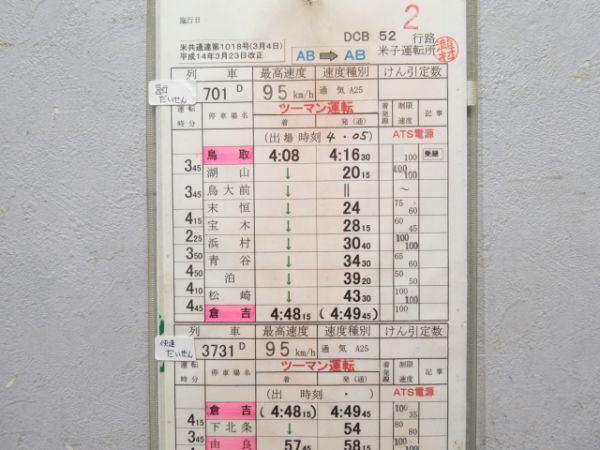 施行日
2
DCB 52 行路
米共通達第1018号(3月4日)
平成14年3月23日改正
AB ➡ AB
米子運転所
列 車 最高速度 速度種別 けん引定数
急行 だいせん
701 D 95 km/h 通気 A25
運転時分 停車場名 ツーマン運転 着発線 制限速度 記事
着 発(通)
(出場時刻 4・05) ATS電源
鳥取 4:08 4:16 30 100 乗継
3 45
湖山 ↓ 20 15 100 100
3 45
鳥大前 ↓ || ～
末恒 ↓ 24 75 60
4 15
宝木 ↓ 28 15 60 45
2 25
浜村 ↓ 30 40 100 100
3 50
青谷 ↓ 34 30 65 60
4 50
泊 ↓ 39 20
4 10
松崎 ↓ 43 30 100 100
4 45
倉吉 4:48 15 (4:49 45) 100
列 車 最高速度 速度種別 けん引定数
快速 だいせん
3731 D 95 km/h 通気 A25
運転時分 停車場名 ツーマン運転 着発線 制限速度 記事
着 発(通)
(出 時刻 ・ ) ATS電源
倉吉 (4:48 15) 4:49 45 100 35
4 15
下北条 ↓ 54 80 80
3 45
由良 57 45 58 15 100